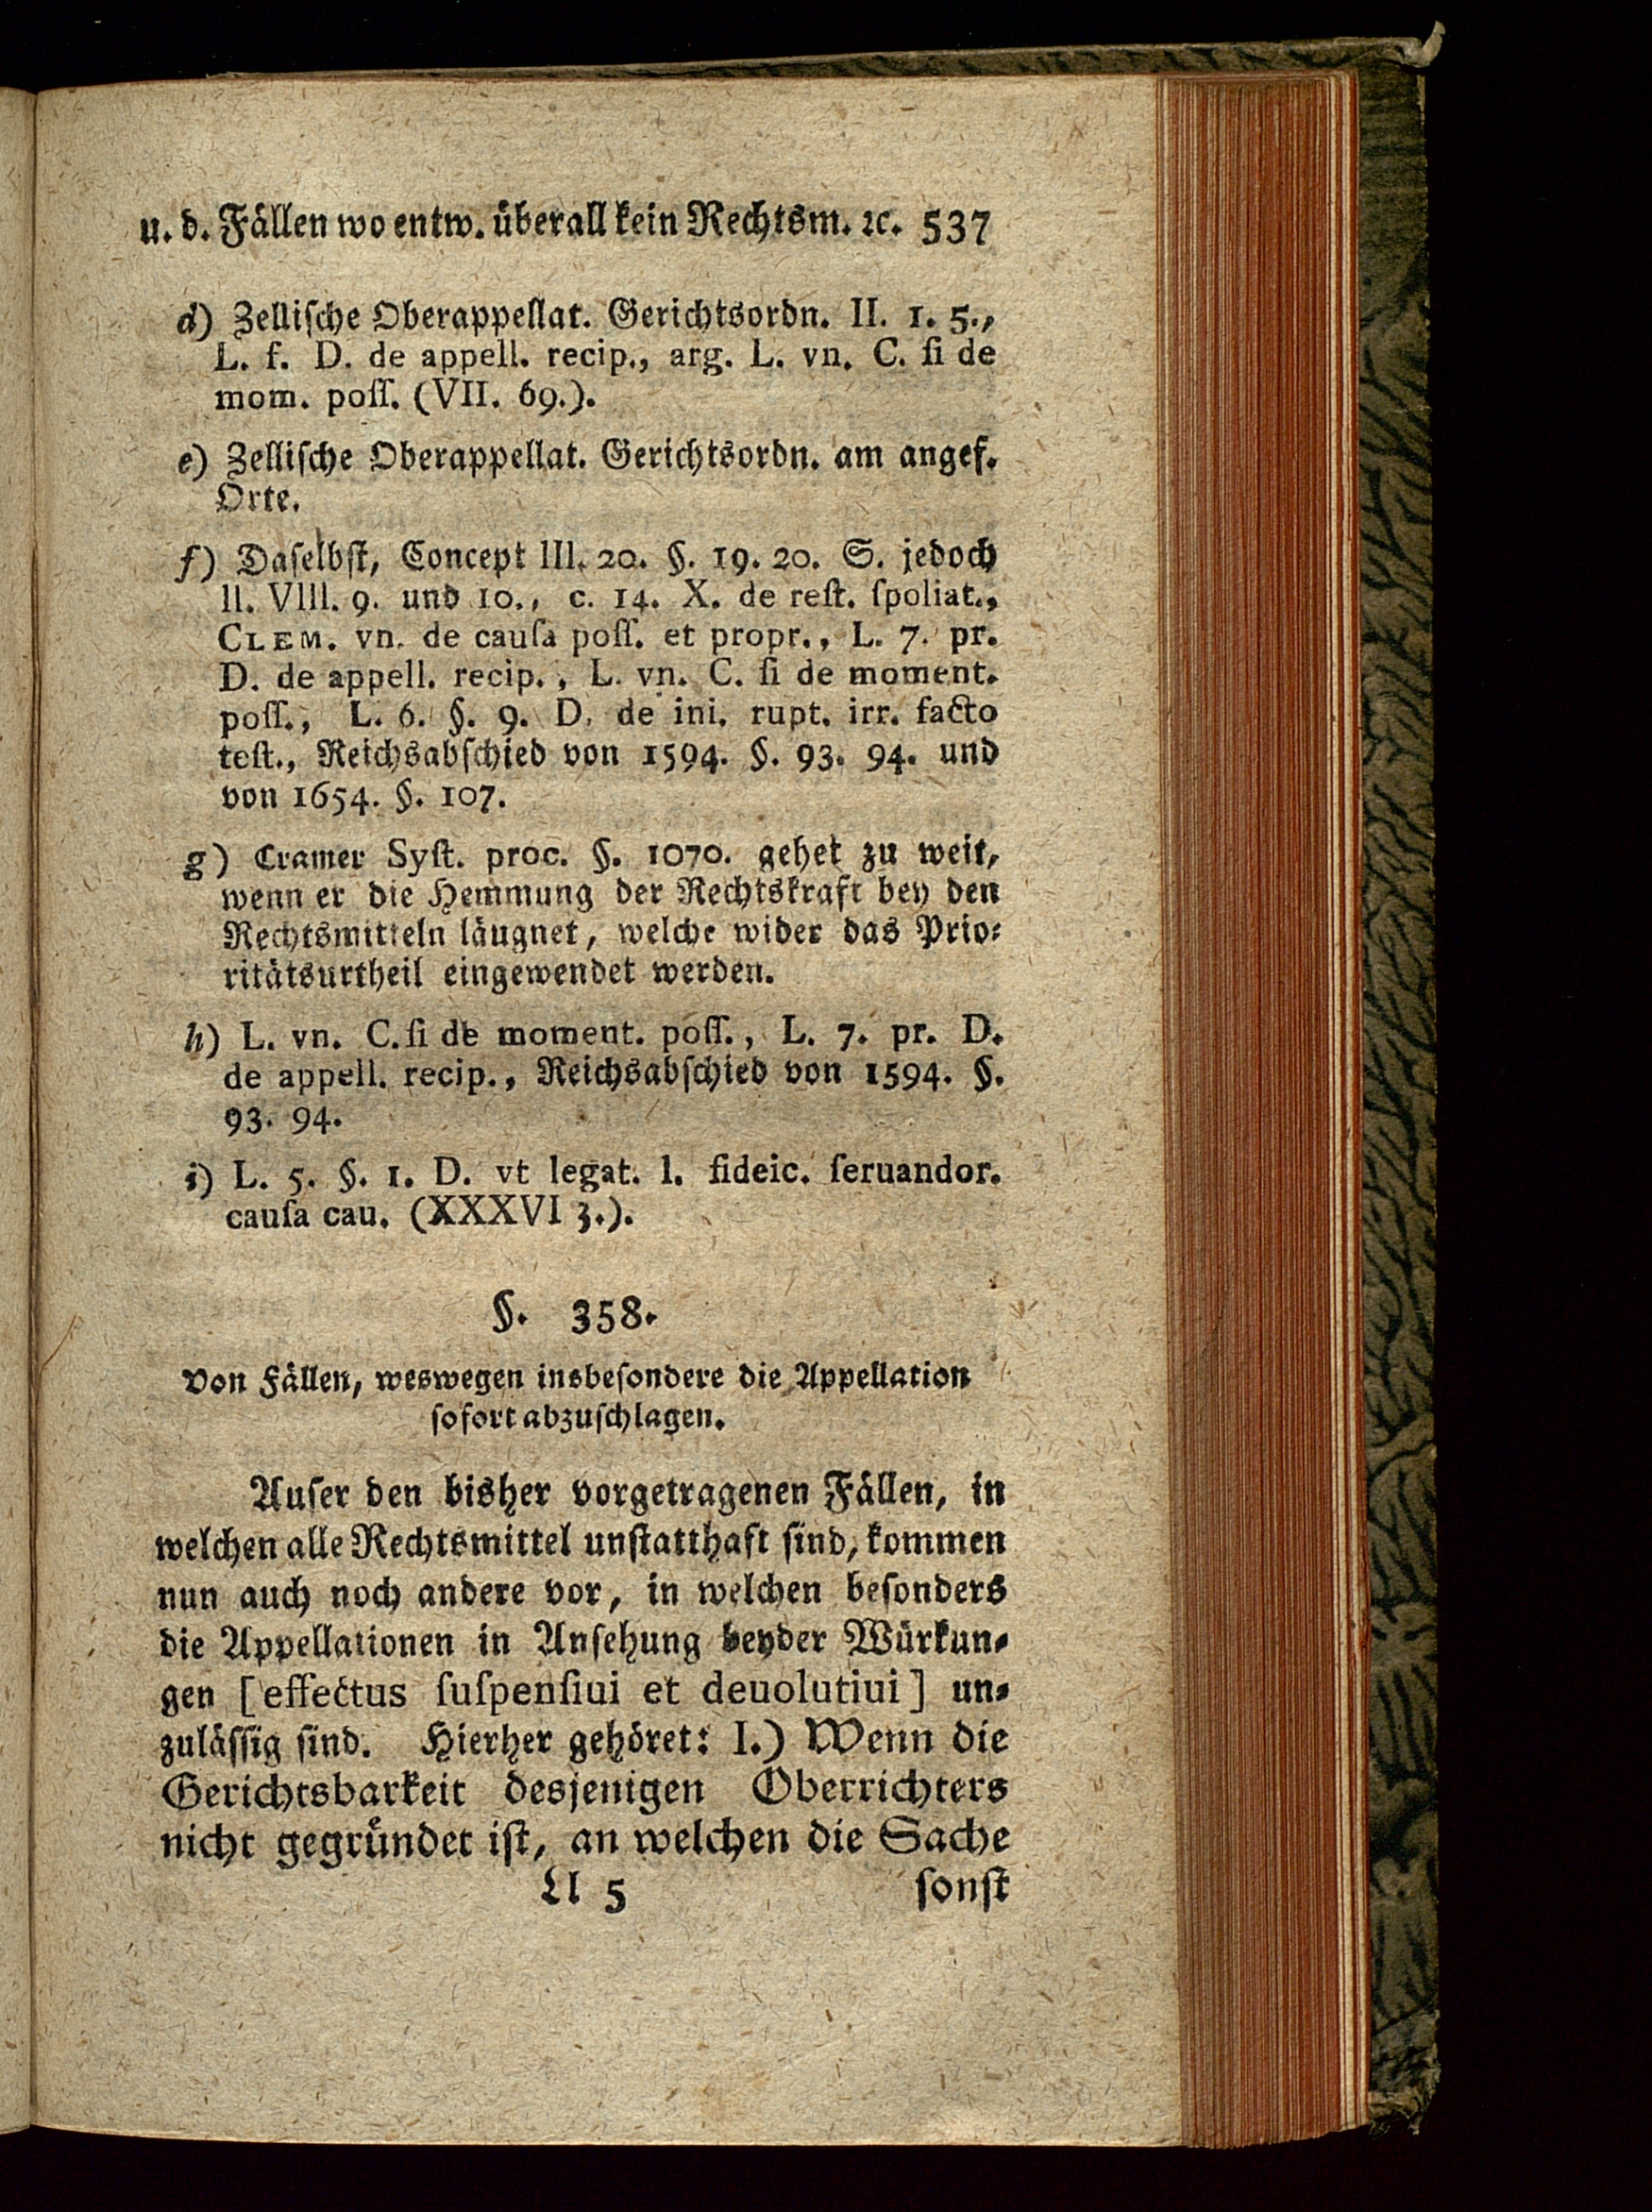 u. d. Fällen wo entw. überall kein Rechtsm. ꝛc. 537
d) Zelliſche Oberappellat. Gerichtsordn. II. 1. 5.,
L. f. D. de appell. recip., arg. L. vn. C. ſi de
mom. poſſ. (VII. 69.).
e) Zelliſche Oberappellat. Gerichtsordn. am angef.
Orte.
f) Daſelbſt, Concept III. 20. §. 19. 20. S. jedoch
II. VIII. 9. und 10., c. 14. X. de reſt. ſpoliat.,
CLEM. vn. de cauſa poſſ. et propr., L. 7. pr.
D. de appell. recip., L. vn. C. ſi de moment.
poſſ., L. 6. §. 9. D. de ini. rupt. irr. facto
teſt., Reichsabſchied von 1594. §. 93. 94. und
von 1654. §. 107.
g) Cramer Syſt. proc. §. 1070. gehet zu weit,
wenn er die Hemmung der Rechtskraft bey den
Rechtsmitteln läugnet, welche wider das Prio⸗
ritätsurtheil eingewendet werden.
h) L. vn. C. ſi de moment. poſſ., L. 7. pr. D.
de appell. recip., Reichsabſchied von 1594. §.
93. 94.
i) L. 5. §. 1. D. vt legat. l. fideic. ſeruandor.
cauſa cau. (XXXVI 3.).
§. 358.
Von Fällen, weswegen insbeſondere die Appellation
ſofort abzuſchlagen.
Auſer den bisher vorgetragenen Fällen, in
welchen alle Rechtsmittel unſtatthaft ſind, kommen
nun auch noch andere vor, in welchen beſonders
die Appellationen in Anſehung beyder Würkun⸗
gen [effectus ſuſpenſiui et deuolutiui] un⸗
zuläſſig ſind. Hierher gehöret: I.) Wenn die
Gerichtsbarkeit desjenigen Oberrichters
nicht gegründet iſt, an welchen die Sache
Ll 5 ſonſt